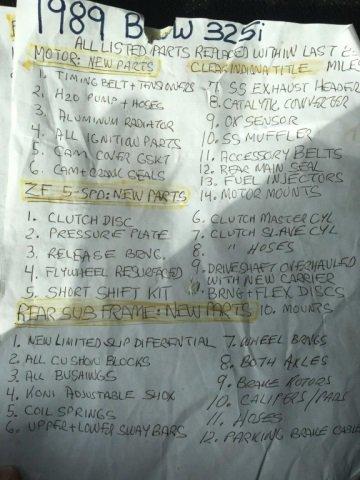 1989 BMW 325i
ALL LISTED PARTS REPLACED WITHIN LAST
MOTOR: NEW PARTS
CLEAR INDIANA TITLE MILES
1. TIMING BELT + TENSIONERS
2. H2O PUMP + HOSES
3. ALUMINUM RADIATOR
4. ALL IGNITION PARTS
5. CAM COVER GSKT
6. CAM + CRANK SEALS
7. SS EXHAUST HEADER
8. CATALYTIC CONVERTER
9. OX SENSOR
10. SS MUFFLER
11. ACCESSORY BELTS
12. REAR MAIN SEAL
13. FUEL INJECTORS
14. MOTOR MOUNTS
ZF 5-SPD: NEW PARTS
1. CLUTCH DISC
2. PRESSURE PLATE
3. RELEASE BRNG.
4. FLYWHEEL RESURFACED
5. SHORT SHIFT KIT
6. CLUTCH MASTER CYL
7. CLUTCH SLAVE CYL
8. " HOSES
9. DRIVESHAFT OVERHAULED
WITH NEW CARRIER
BRNG + FLEX DISCS
10. MOUNTS
REAR SUB FRAME: NEW PARTS
1. NEW LIMITED SLIP DIFERENTIAL
2. ALL CUSHON BLOCKS
3. ALL BUSHINGS
4. KONI ADJUSTABLE SHOX
5. COIL SPRINGS
6. UPPER + LOWER SWAY BARS
7. WHEEL BRNGS
8. BOTH AXLES
9. BRAKE ROTORS
10. CALIPERS/PADS
11. HOSES
12. PARKING BRAKE CABLE